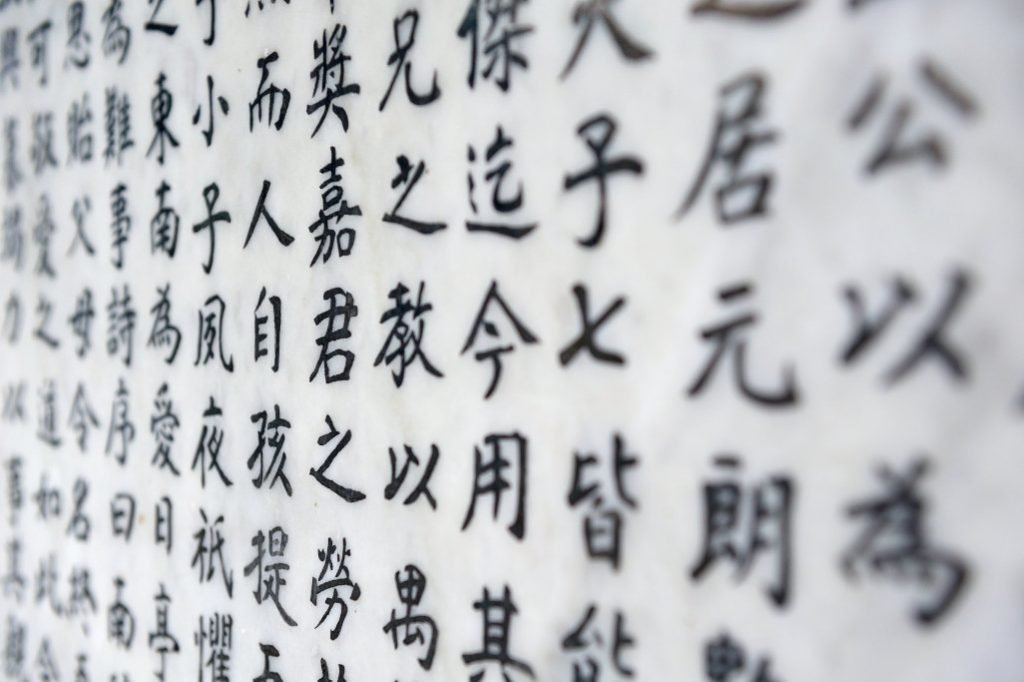 公以為
居元朗
子七皆能
傑迄今用其
兄之教以禺
獎嘉君之勞
而人自孩提
小子夙夜祇懼
東南為愛日亭
為難事詩序曰南
恩貽父母令名終
可敬愛之道如此
力以事其親